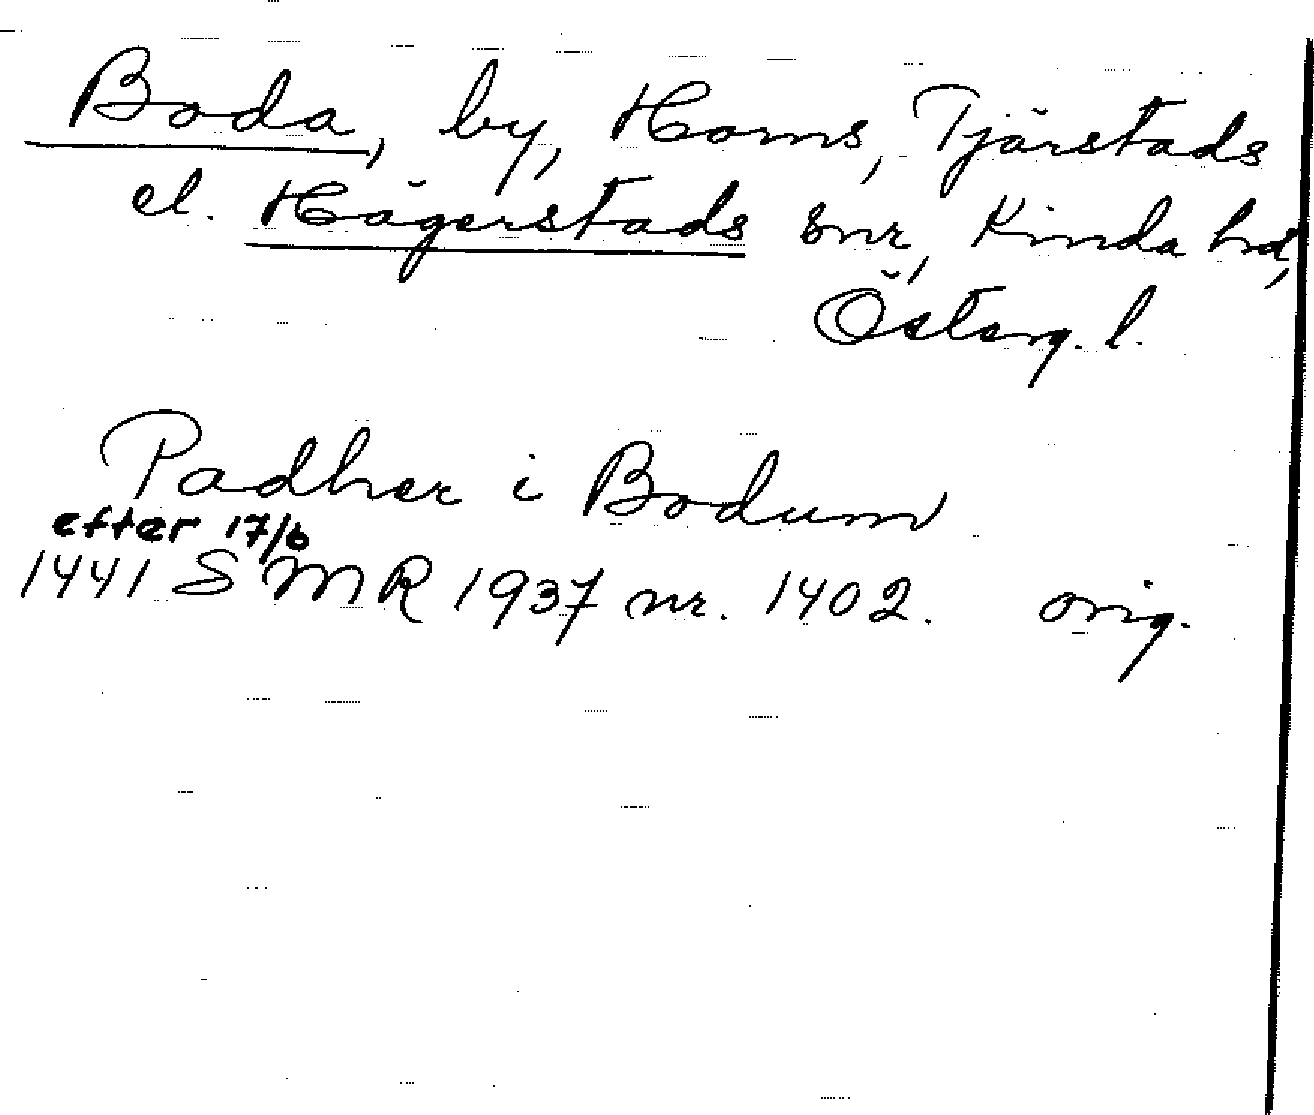 Boda, by, Horns, Tjärstads
el. Hägerstads snr, Kinda hd,
Österg. l.
Padher i Bodum
efter 17/6
1441 SMR 1937 nr. 1402. orig.